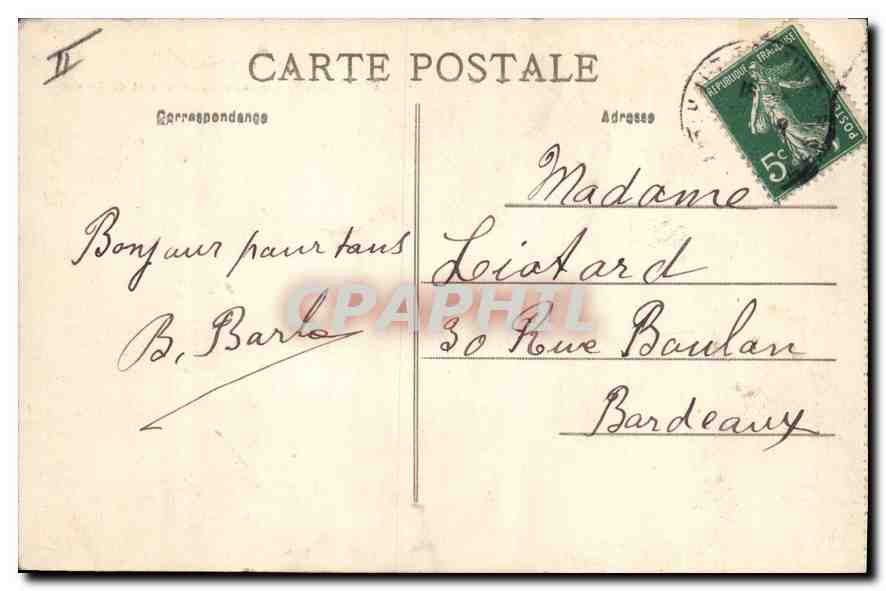 II
CARTE POSTALE
Correspondance
Adresse
RÉPUBLIQUE FRANÇAISE
POSTES
5c
Madame
Bonjour pour tous
Liotard
CPAPHIL
B. Barla
30 Rue Boulan
Bordeaux